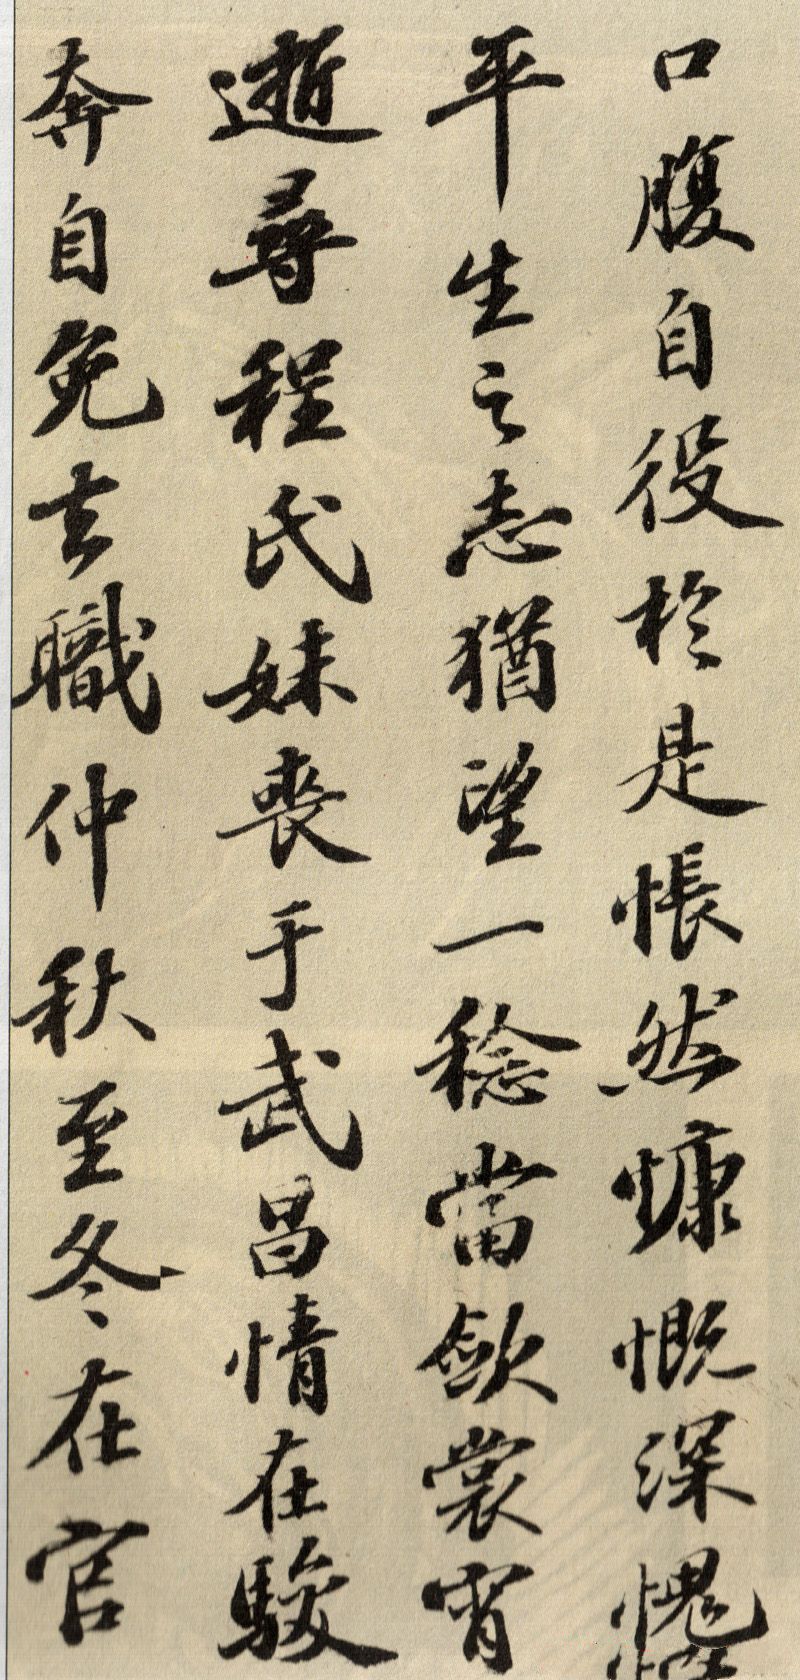 口腹自役於是悵然慷慨深愧
平生之志猶望一稔當斂裳宵
逝尋程氏妹喪于武昌情在駿
奔自免去職仲秋至冬在官